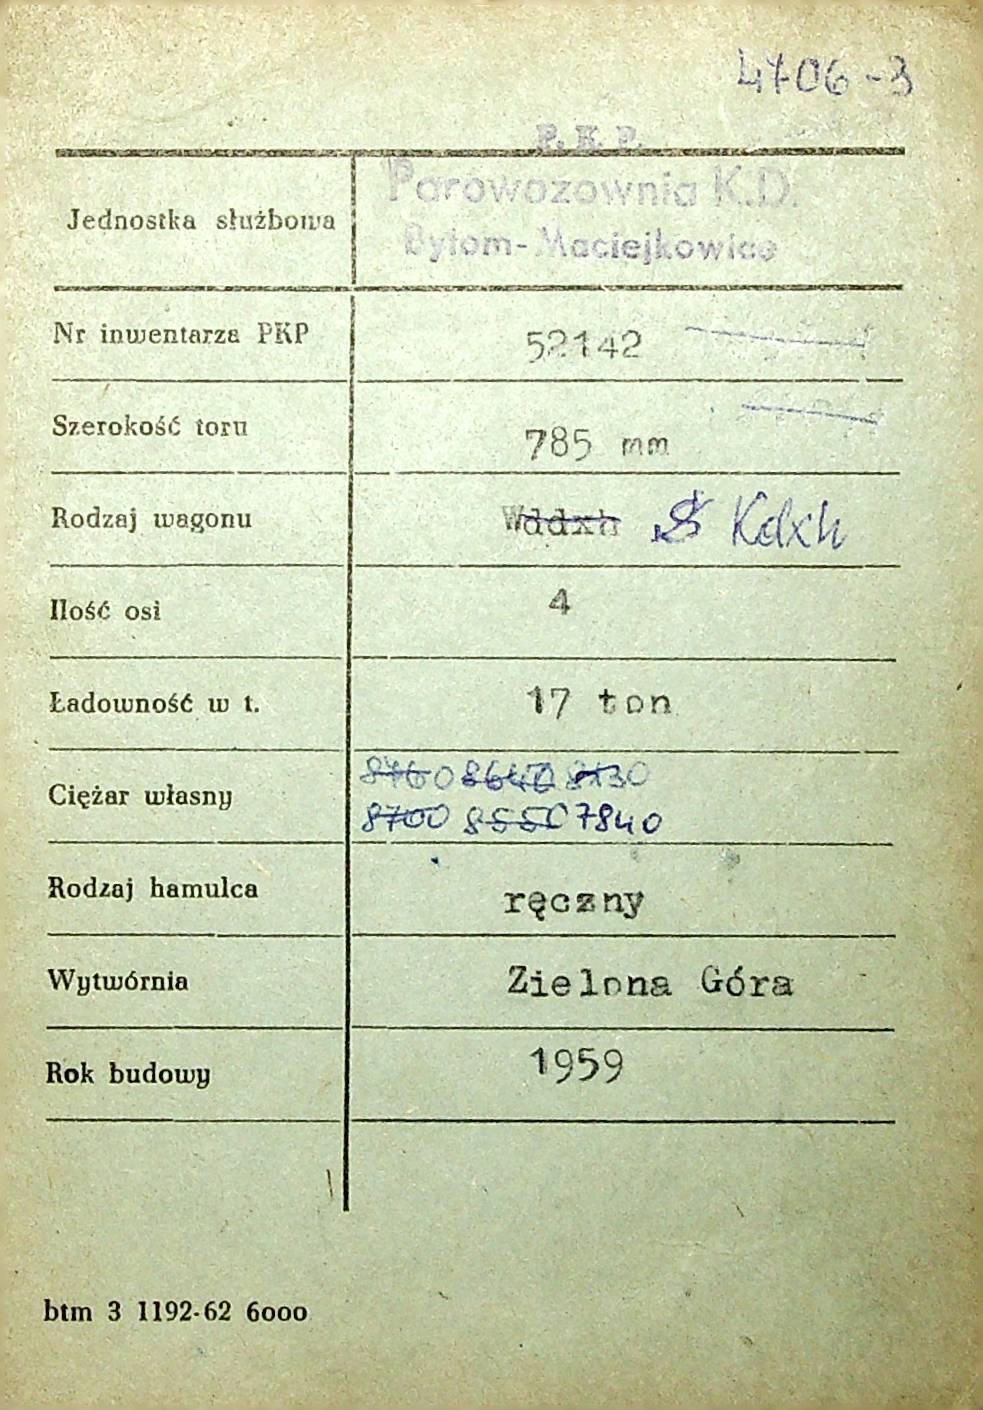 4706-3
P.K.P.
Parowozownia K.D.
Jednostka służbowa
Bytom-Maciejkowice
Nr inwentarza PKP 52142
Szerokość toru 785 mm
Rodzaj wagonu Wddxh Kdxh
Ilość osi 4
Ładowność w t. 17 ton
8760 8640 8130
Ciężar własny
8700 8550 7840
Rodzaj hamulca ręczny
Wytwórnia Zielona Góra
Rok budowy 1959
btm 3 1192-62 6000